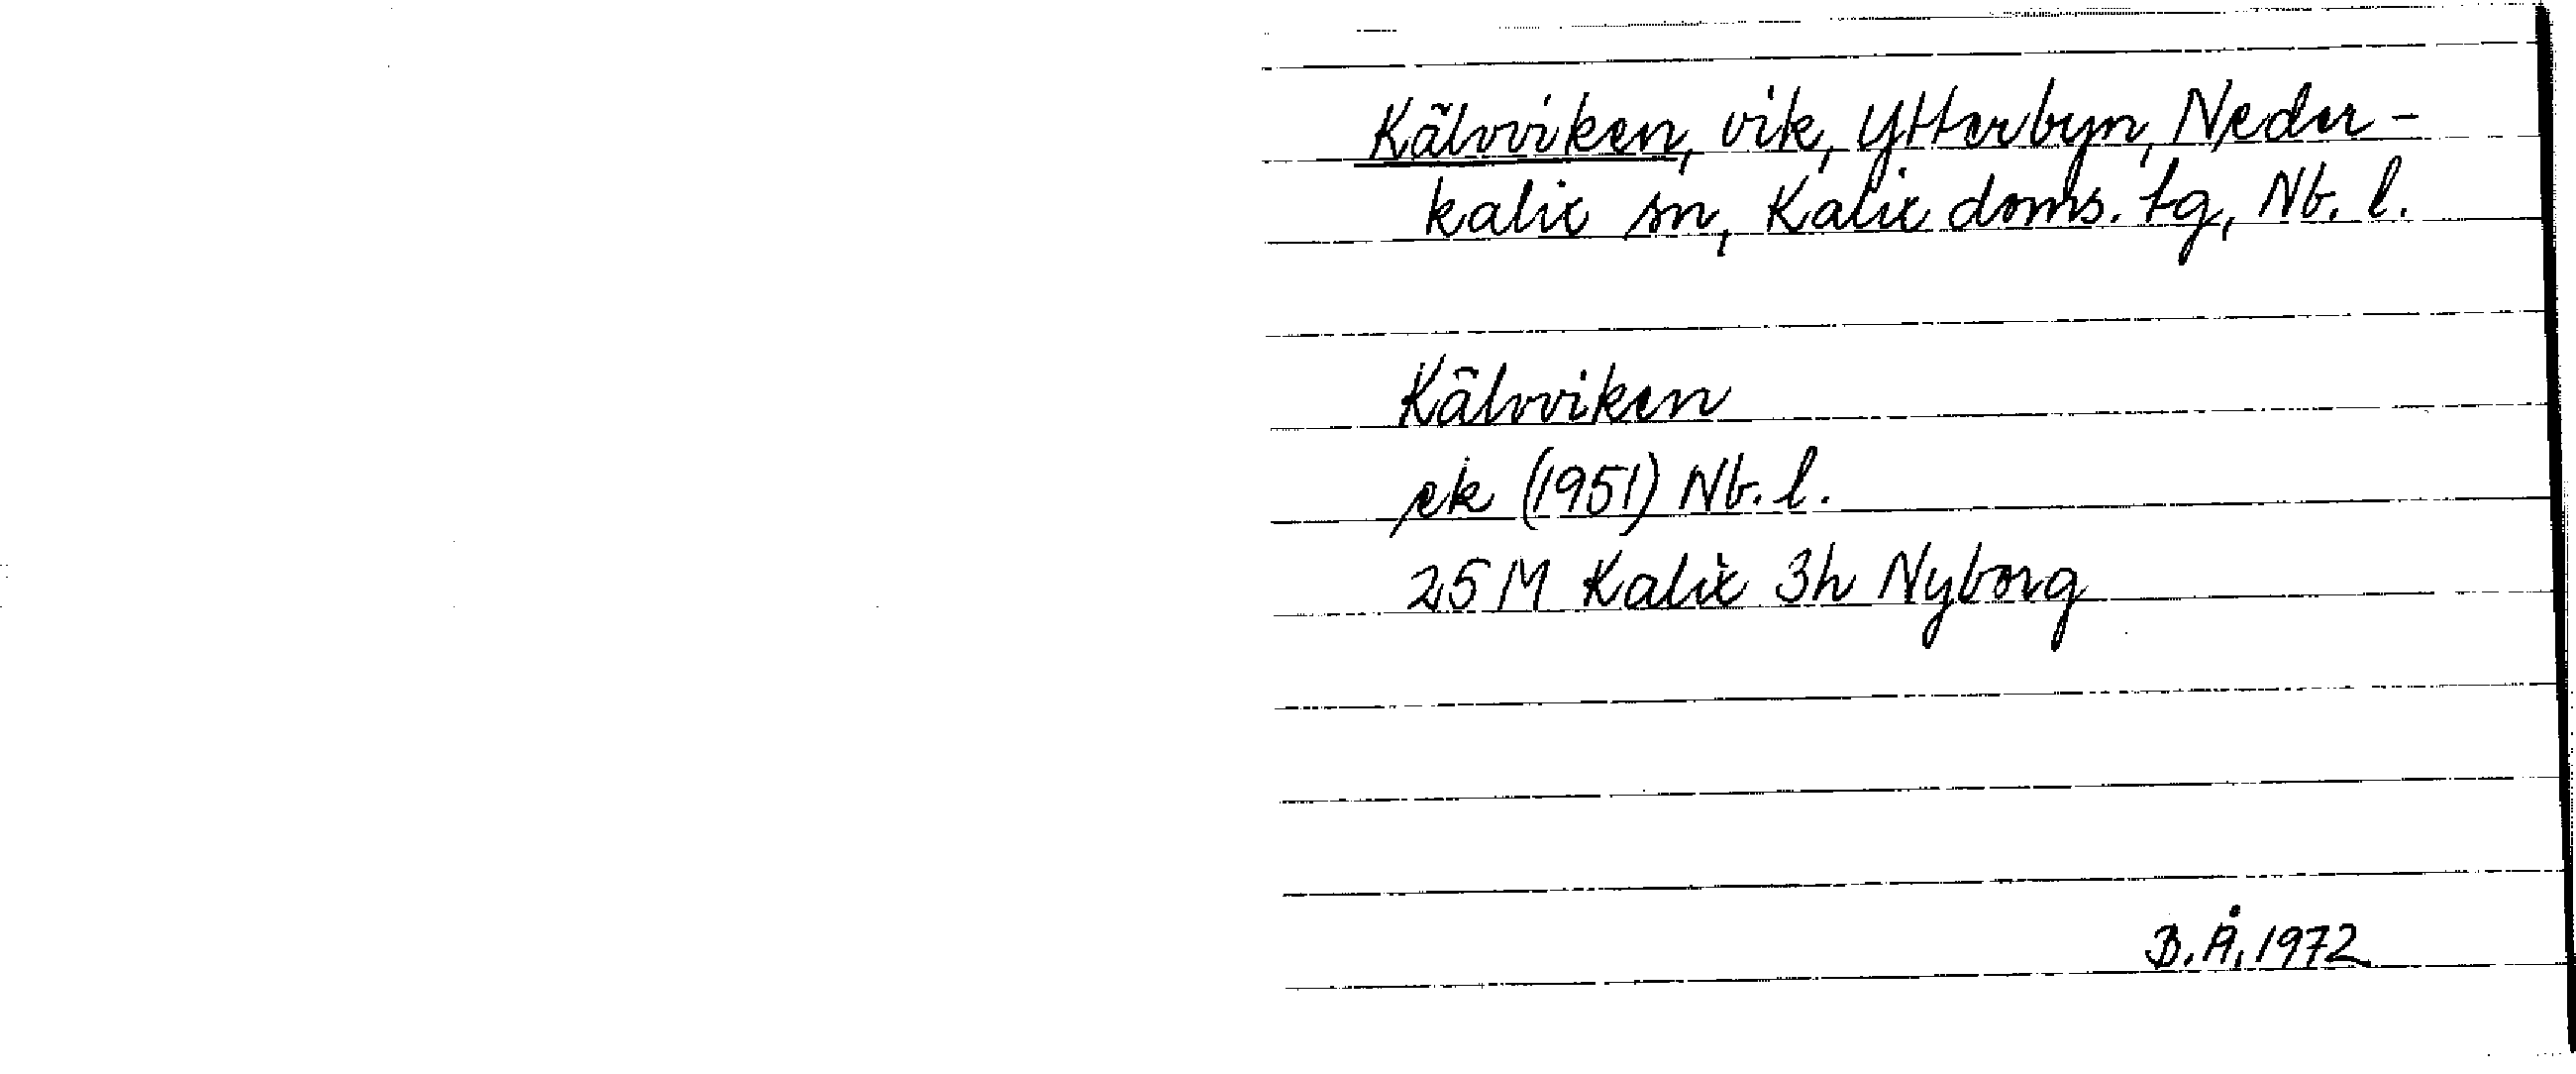 Kälvviken, vik, Ytterbyn, Neder-
kalix sn, Kalix doms. tg, Nb. l.
Kälvviken
ek (1951) Nb. l.
25 M Kalix 3h Nyborg
B. Å. 1972